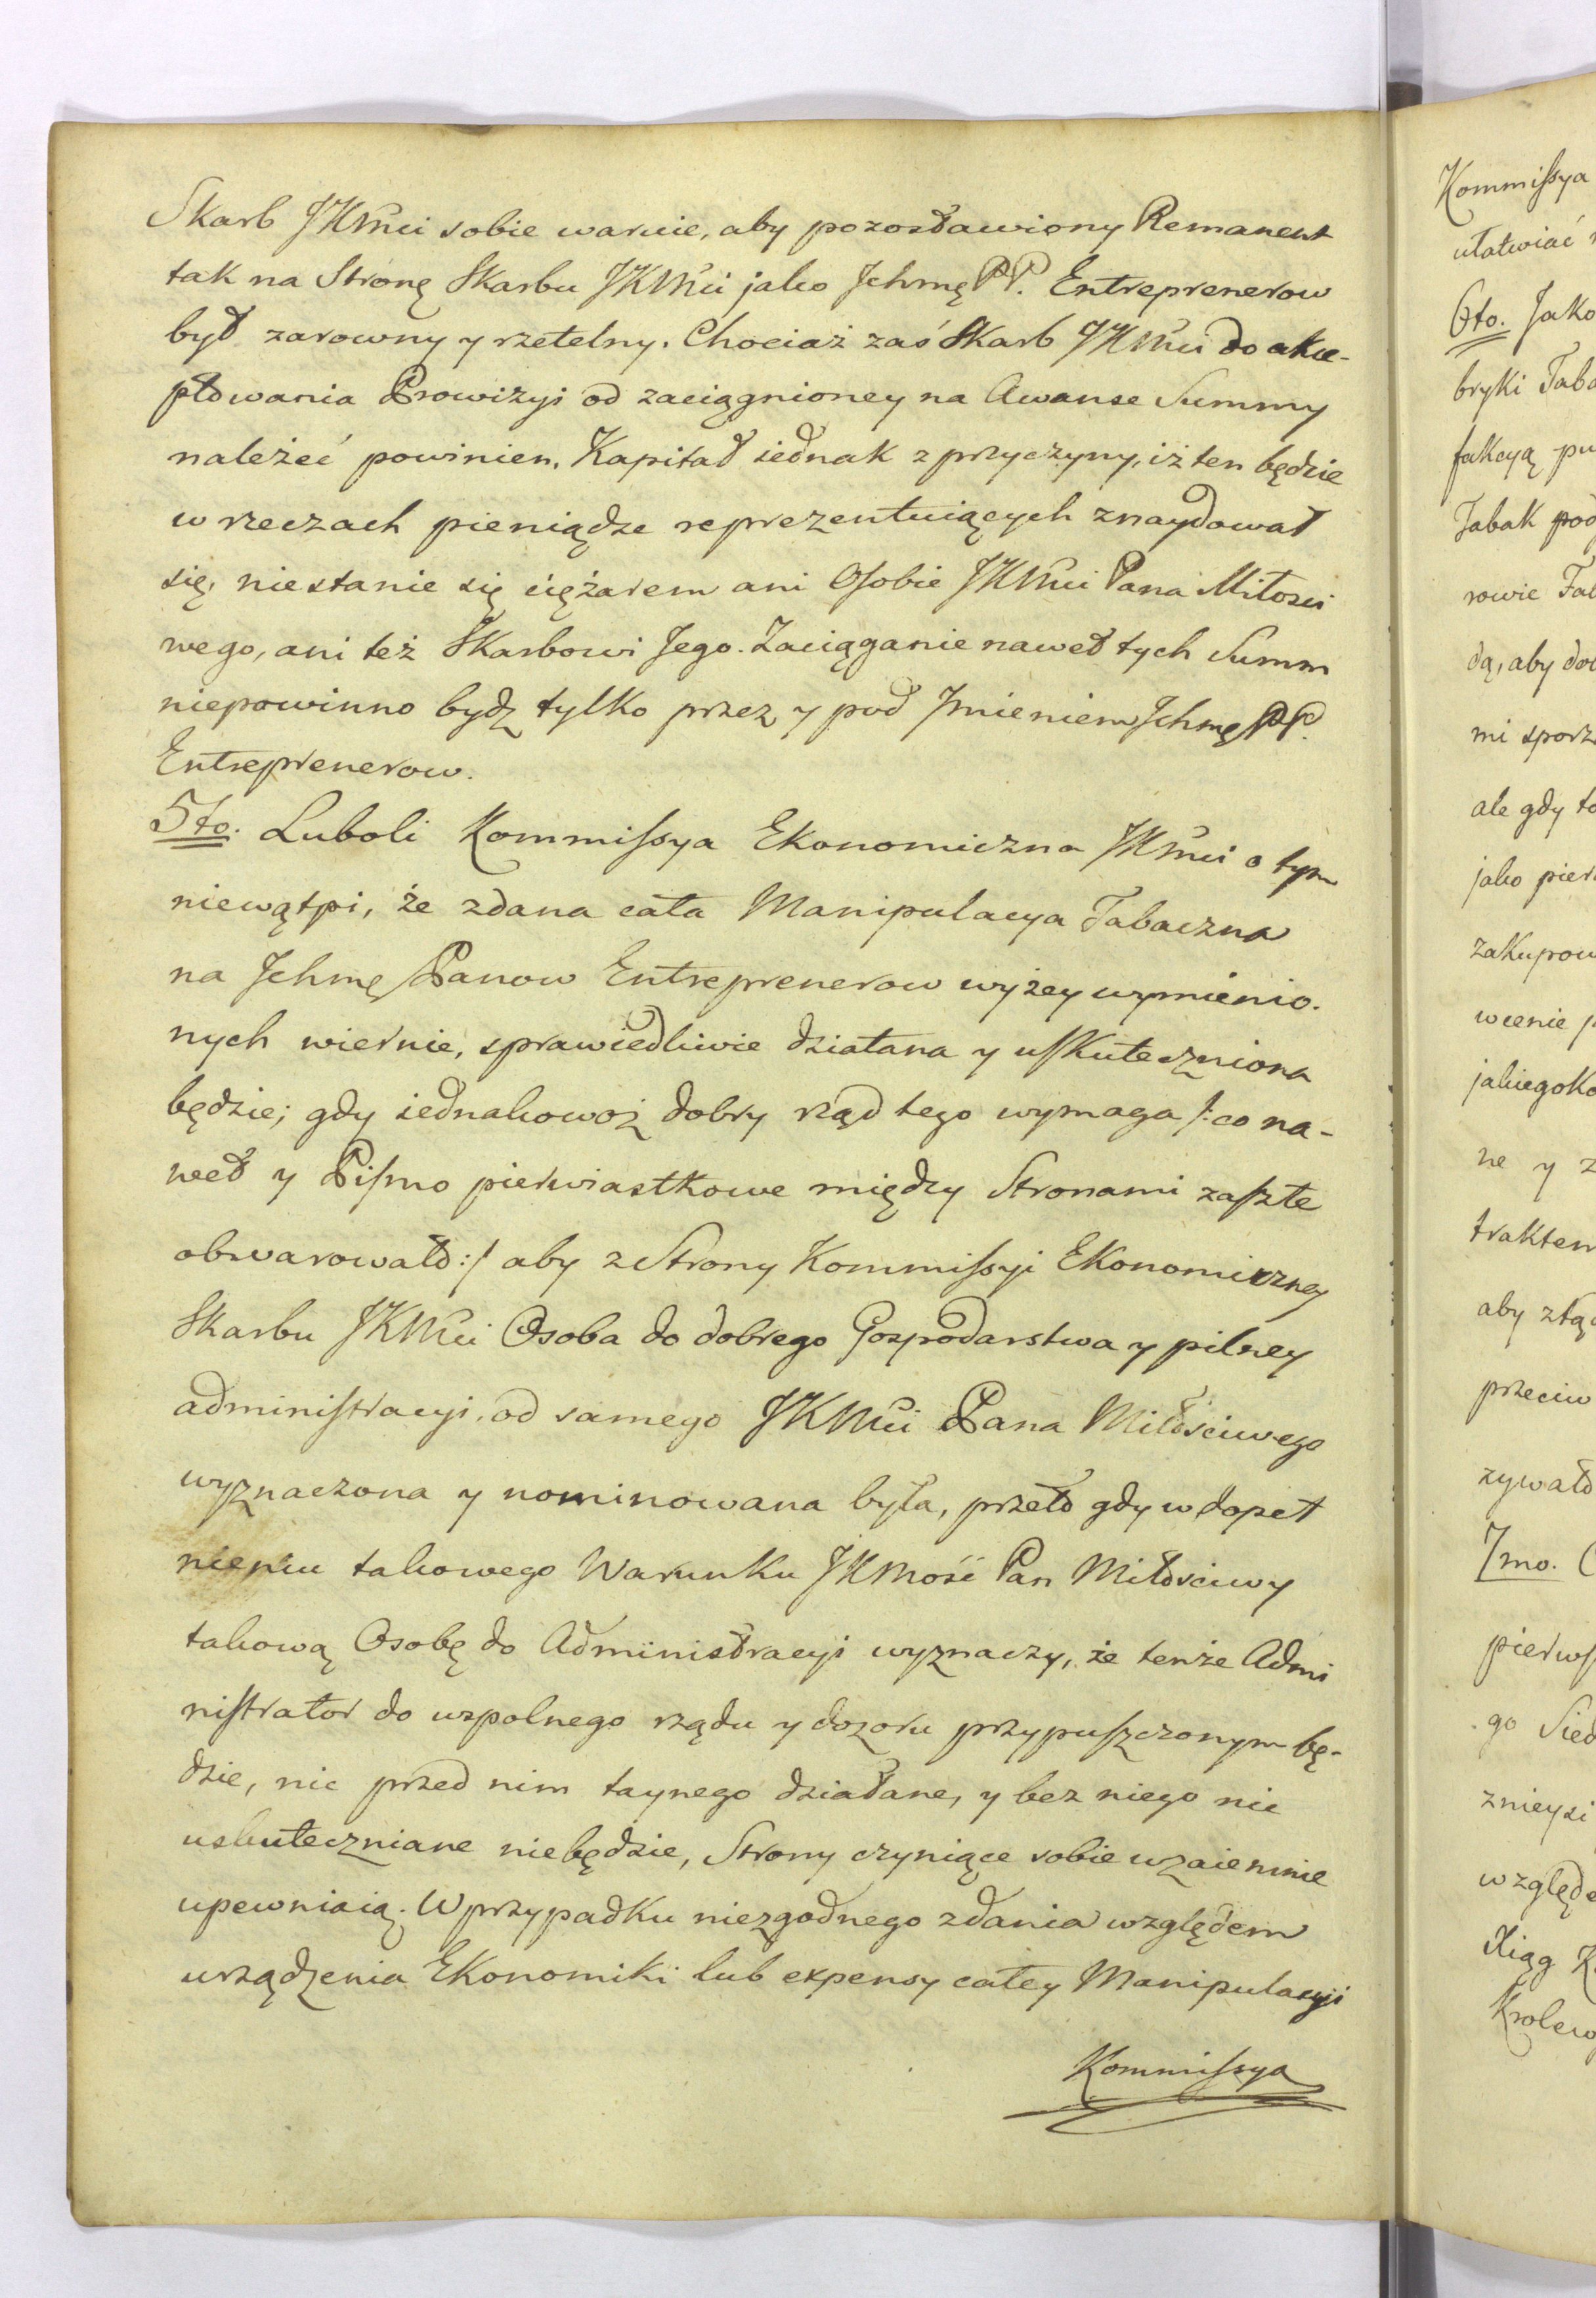 Skarb JKMci sobie waruie, aby pozostawiony Remanent
tak na Stronę Skarbu JKMci jako Jchmę PP. Entreprenerow
był zarowny y rzetelny. Chociaż zaś Skarb JKMci do akce-
ptowania Prowizyi od zaciągnioney na Awanse Summy
należeć powinien, Kapitał iednak z przyczyny, iż ten będzie
w rzeczach pieniądze reprezentuiących znaydował
się, niestanie się ciężarem ani Osobie JKMci Pana Miłosci
wego, ani też Skarbowi Jego. Zaciąganie nawet tych Summ
niepowinno bydz tylko przez y pod Jmieniem Jchmę PP.
Entreprenerow.
5to. Luboli Kommissya Ekonomiczna JKMci o tym
niewątpi, że zdana cała Manipulacya Tabaczna
na Jchmę Panow Entreprenerow wyżey wymienio-
nych wiernie, sprawiedliwie działana y uskuteczniona
będzie; gdy iednakowoż dobry rząd tego wymaga /: co na-
wet y Pismo pierwiastkowe między Stronami zaszłe
obwarowało :/ aby z Strony Kommissyi Ekonomiczney
Skarbu JKMci Osoba do dobrego Gospodarstwa y pilney
administracyi, od samego JKMci Pana Miłościwego
wyznaczona y nominowana była, przeto gdy w dopeł
nieniu takowego Warunku JKMość Pan Miłościwy
takową Osobę do Administracyi wyznaczy, że tenże Admi
nistrator do wspolnego rządu y dozoru przypuszczonym bę-
dzie, nic przed nim taynego działane, y bez niego nic
uskuteczniane niebędzie, Strony czyniące sobie wzaiemnie
upewniaią. W przypadku niezgodnego zdania względem
urządzenia Ekonomiki lub expensy całey Manipulacyi
Kommissya
Kommissya
ułatwiać
6to. Jako
bryki Taba
fakcyą pu
Tabak pod
rowie Tab
dą, aby do
mi sporz
ale gdy to
jako pier
zakupow
wcenie
jakiegoko
ne y z
trakten
aby złą
przeciw
zywało
7mo.
pierws
go Sied
znieysi
względe
Xiąg K
Krolew